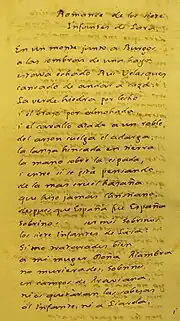 Romance de los siete
Infantes de Lara.
En un monte junto a Burgos
a las sombras de una haya
estava echado Rui Velasquez
cansado de andar a caça:
La verde hiedra por lecho
i el braço por almohada
i el cavallo atado a un roble
del arçon cuelga el adarga
la lança hincada en tierra
la mano sobre la espada,
i entre si se està pensando
de la mas cruel hazaña
que hizo jamas Christiano
despues que España fue España
Sobrino mi Sobrino
los siete Infantes de Lara:
Si me matarades bien
a mi muger Doña Alambra
no murierades, Sobrino
en campos de Araviana
ni os quitaran las cabeças